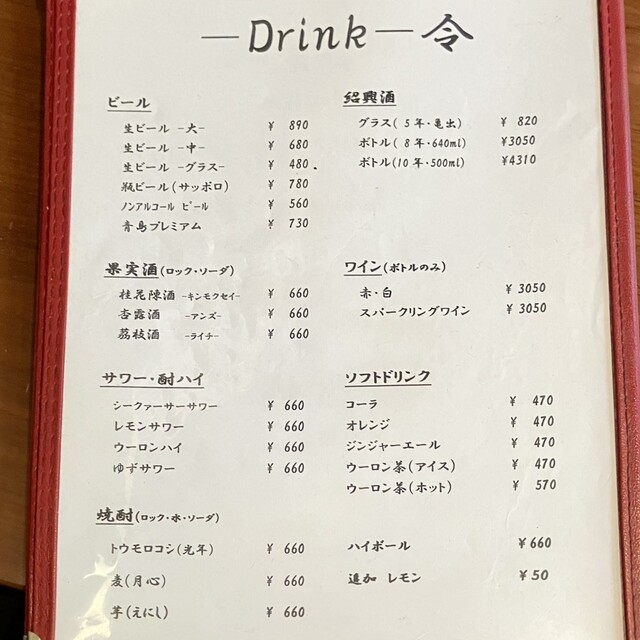 —Drink—令
ビール
生ビール -大- ¥ 890
生ビール -中- ¥ 680
生ビール -グラス- ¥ 480
瓶ビール(サッポロ) ¥ 780
ノンアルコール ビール ¥ 560
青島プレミアム ¥ 730
紹興酒
グラス( 5年・亀出) ¥ 820
ボトル( 8年・640ml) ¥3050
ボトル(10年・500ml) ¥4310
果実酒(ロック・ソーダ)
桂花陳酒 -キンモクセイ- ¥ 660
杏露酒 -アンズ- ¥ 660
茘枝酒 -ライチ- ¥ 660
ワイン(ボトルのみ)
赤・白 ¥ 3050
スパークリングワイン ¥ 3050
サワー・酎ハイ
シークァーサーサワー ¥ 660
レモンサワー ¥ 660
ウーロンハイ ¥ 660
ゆずサワー ¥ 660
ソフトドリンク
コーラ ¥ 470
オレンジ ¥ 470
ジンジャーエール ¥ 470
ウーロン茶(アイス) ¥ 470
ウーロン茶(ホット) ¥ 570
焼酎(ロック・水・ソーダ)
トウモロコシ(光年) ¥ 660
麦(月心) ¥ 660
芋(えにし) ¥ 660
ハイボール ¥660
追加 レモン ¥50